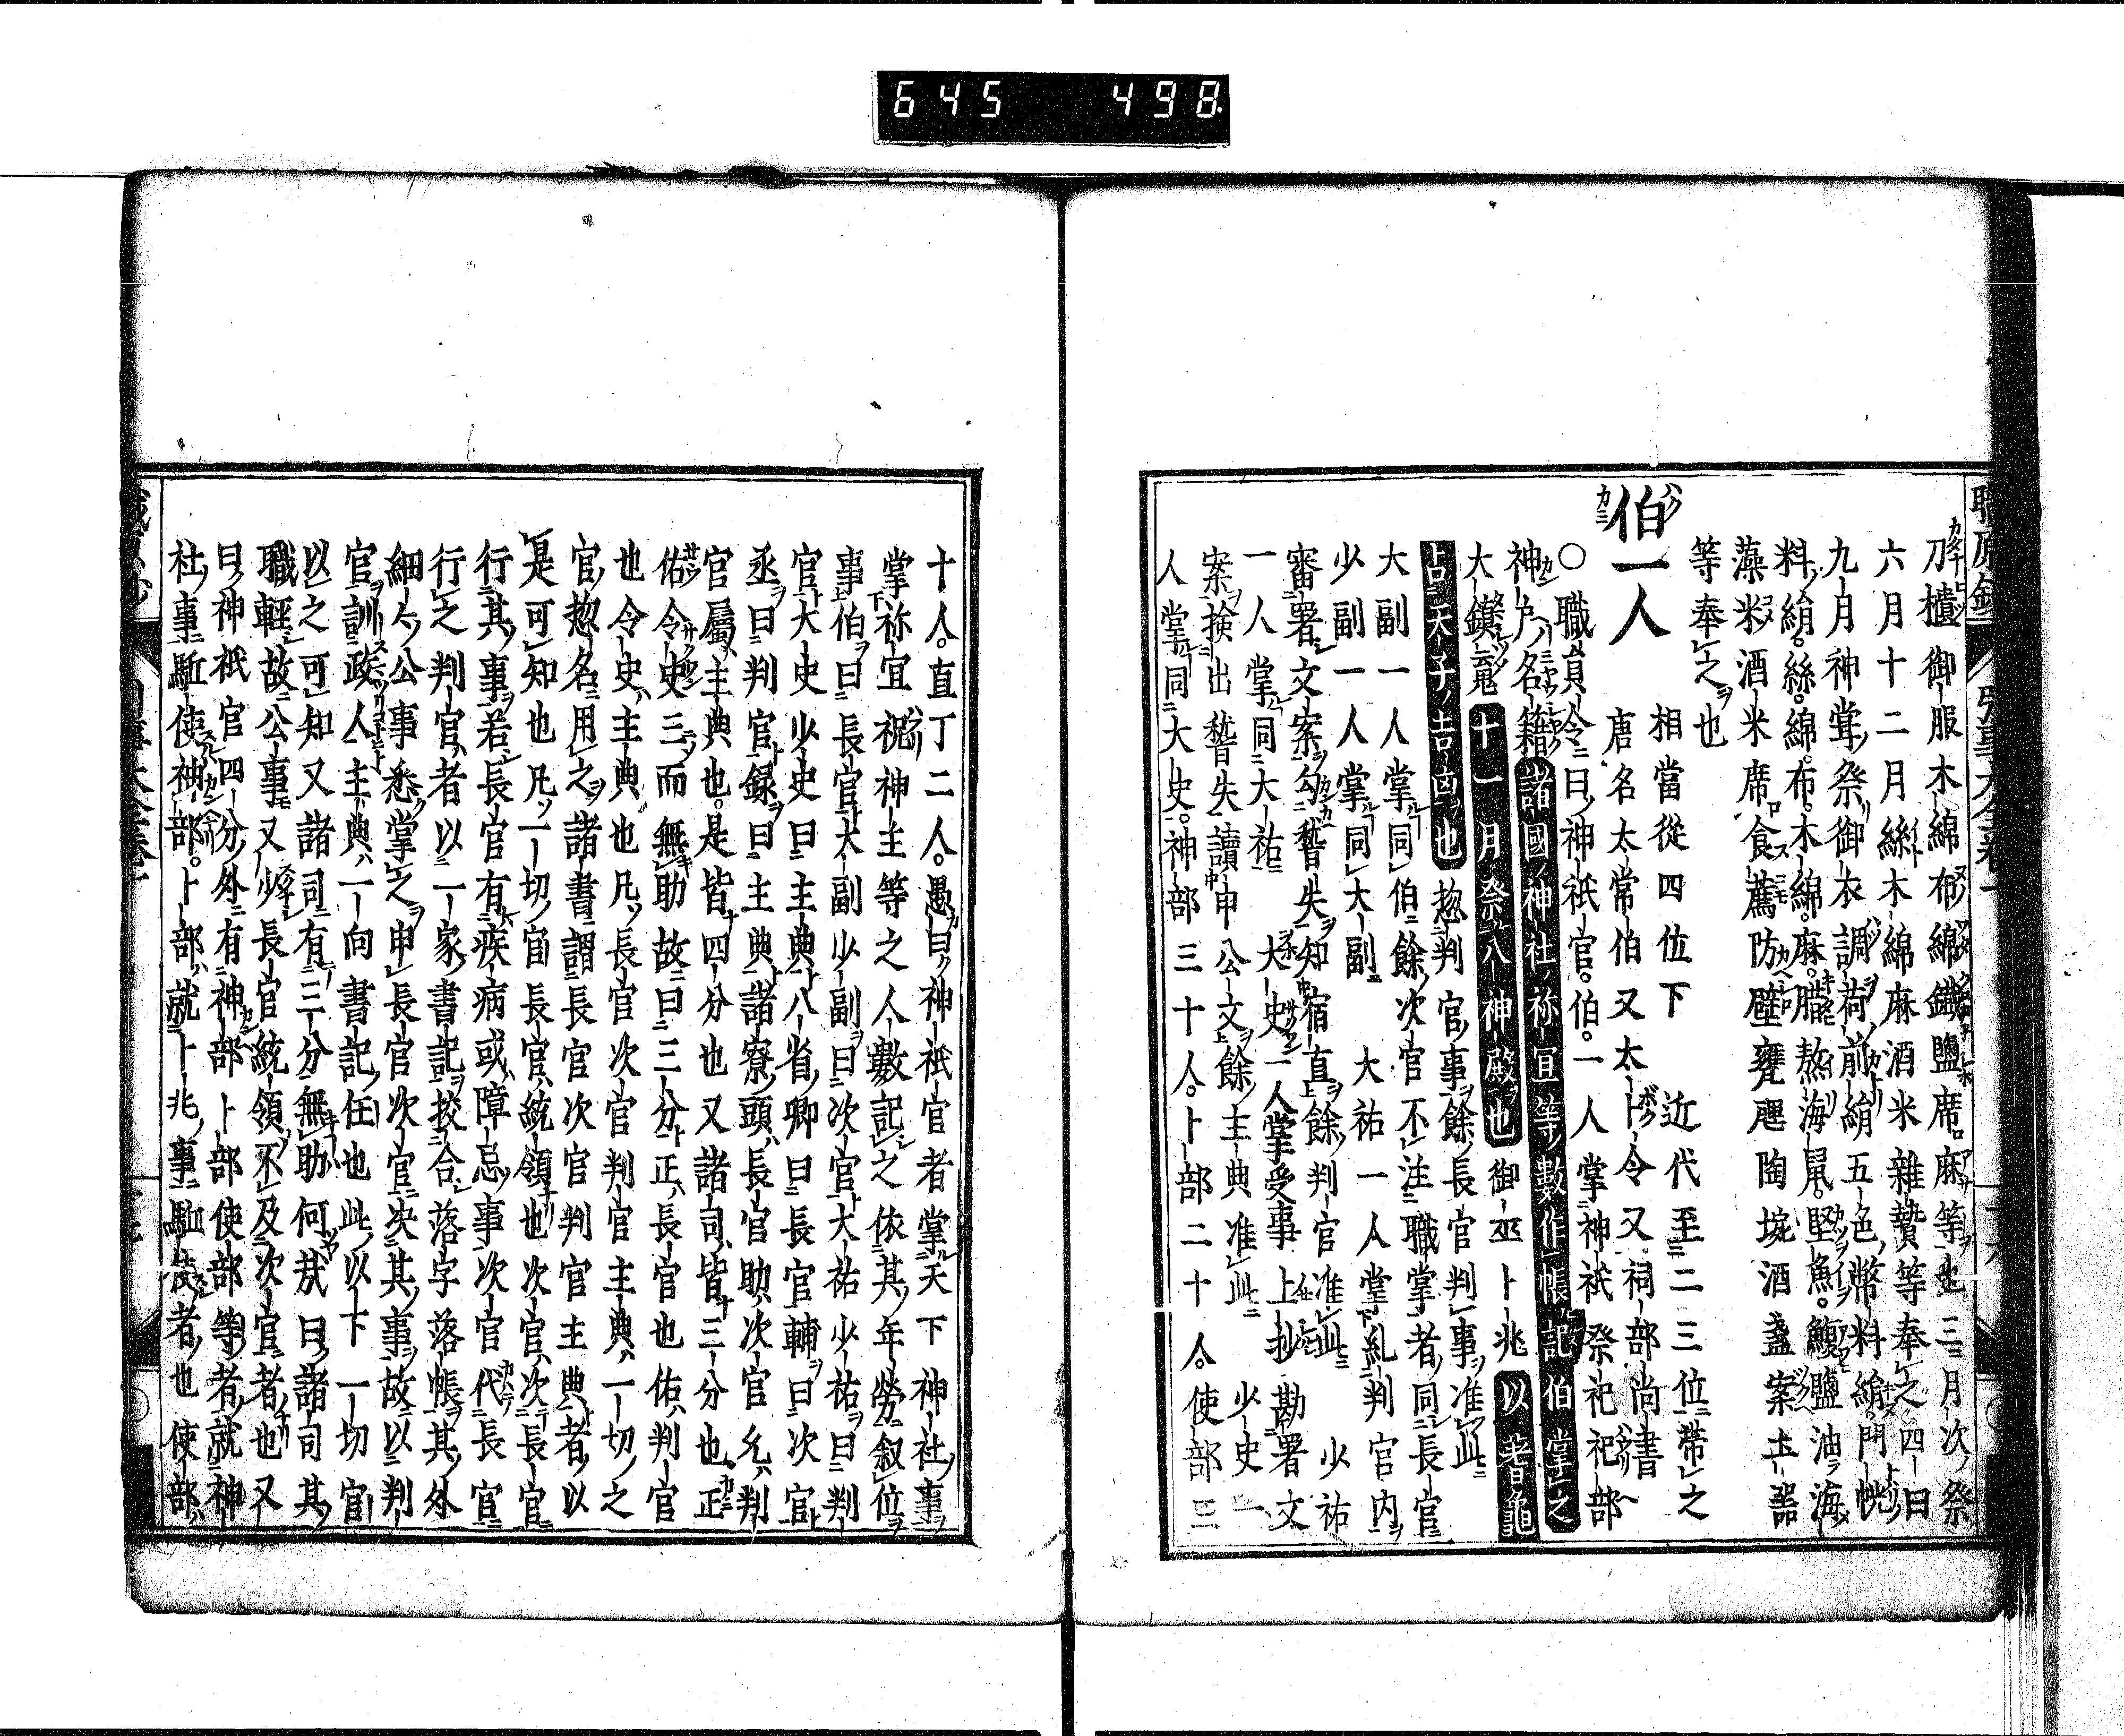 645 498
刀櫃御服木綿布綿鐵鹽席麻等也三月次祭
六月十二月絲木綿麻酒米雜贄等奉之四曰
九月神甞祭御衣調荷前絹五色幣料絹門幌
料絹絲綿布木綿麻臘熬海鼠堅魚鰒鹽油海
藻米酒米席食薦防壁甕陶埦酒盞案土器
等奉之也
伯一人
相當從四位下 近代至二三位帶之
唐名太常伯又太卜令又祠部尚書
○職員令曰神祇官伯一人掌神祇祭祀祀部
神戸名籍諸國神社祢宜等數作帳記伯掌之
大鎮魂十一月祭八神殿也御巫卜兆以蓍龜
占天子吉凶也惣判官事餘長官判事准此
大副一人掌同伯餘次官不注職掌者同長官
少副一人掌同大副 大祐一人掌糺判官内
審署文案勾稽失知宿直餘判官准此 少祐
一人掌同大祐 大史一人掌受事上抄勘署文
案檢出稽失讀申公文餘主典准此 少史一
人掌同大史神部三十人卜部二十人使部三
十人直丁二人愚曰神祇官者掌天下神社事
掌祢宜祝神主等之人數記之依其年勞叙位
事伯曰長官大副少副曰次官大祐少祐曰判
官大史少史曰主典八省卿曰長官輔曰次官
丞曰判官録曰主典諸寮頭長官助次官允判
官屬主典也是皆四分也又諸司皆三分也正
佑令史三而無助故曰三分正長官也佑判官
也令史主典也凡長官次官判官主典一切之
官惣名用之諸書謂長官次官判官主典者以
是可知也凡一切官長官統領也次官次長官
行其事若長官有疾病或障忌事次官代長官
行之判官者以一家書記挍合落字落帳其外
細々公事悉掌之申長官次官决其事故以判
官訓政人主典一向書記任也此以下一切官
以之可知又諸司有三分無助何哉曰諸司其
職輕故公事又少長官統領不及次官者也又
曰神祇官四分外有神部卜部使部等者就神
社事駈使神部卜部就卜兆事駈使者也使部